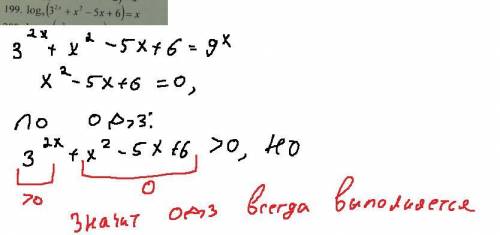 199. log₉(3^{2x} + x² − 5x + 6) = x
3^{2x} + x² − 5x + 6 = 9^x
x² − 5x + 6 = 0,
по ОДЗ:
3^{2x} + x² − 5x + 6 > 0, но
>0 0
значит ОДЗ всегда выполняется